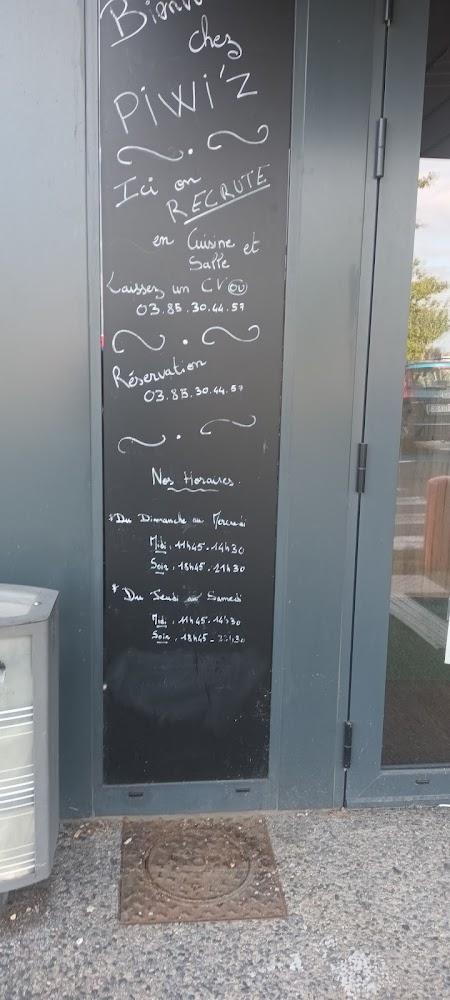 chez
PiWi'Z
Ici on
RECRUTE
en Cuisine et
Salle
Laissez un CV OU
03.85.30.44.57
Réservation
03.85.30.44.57
Nos Horaires.
* Du Dimanche au Mercredi
Midi. 11h45-14h30
Soir. 18h45-21h30
* Du Jeudi au Samedi
Midi. 11h45-14h30
Soir. 18h45-